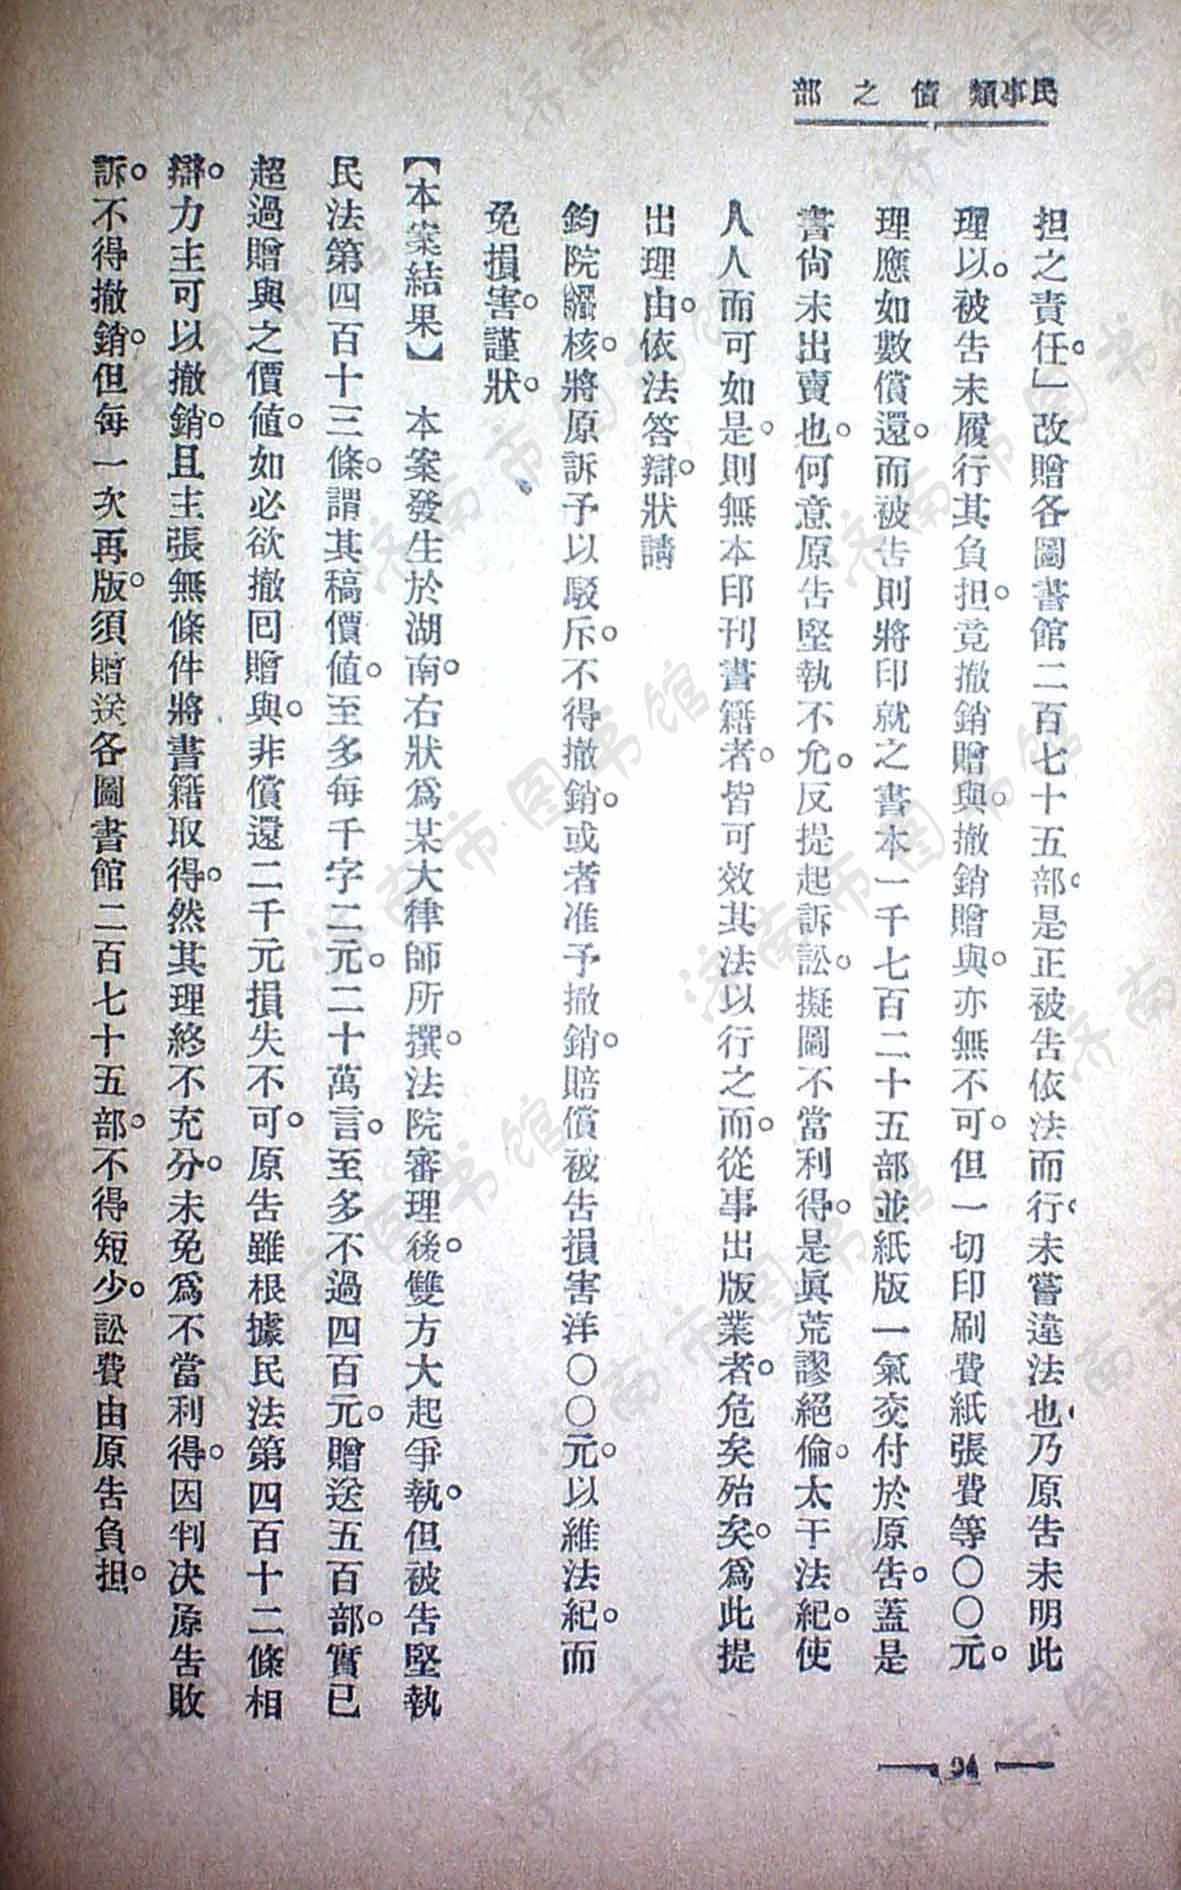 民事類 債之部
担之責任。」改贈各圖書館二百七十五部。是正被告依法而行。未嘗違法也。乃原告未明此
理。以被告未履行其負担。竟撤銷贈與。撤銷贈與。亦無不可。但一切印刷費紙張費等〇〇元。
理應如數償還。而被告則將印就之書本一千七百二十五部並紙版一氣交付於原告。蓋是
書尚未出賣也。何意原告堅執不允。反提起訴訟。擬圖不當利得。是眞荒謬絕倫。太干法紀。使
人人而可如是。則無本印刊書籍者。皆可效其法以行之。而從事出版業者。危矣殆矣。爲此提
出理由。依法答辯。狀請
鈞院核。將原訴予以駁斥。不得撤銷。或者准予撤銷。賠償被告損害洋〇〇元。以維法紀。而
免損害。謹狀。
【本案結果】 本案發生於湖南。右狀爲某大律師所撰。法院審理後。雙方大起爭執。但被告堅執
民法第四百十三條。謂其稿價值。至多每千字二元。二十萬言。至多不過四百元。贈送五百部。實已
超過贈與之價值。如必欲撤回贈與。非償還二千元損失不可。原告雖根據民法第四百十二條相
辯。力主可以撤銷。且主張無條件將書籍取得。然其理終不充分。未免爲不當利得。因判决原告敗
訴。不得撤銷。但每一次再版。須贈送各圖書館二百七十五部。不得短少。訟費由原告負担。
94
济南市图书馆